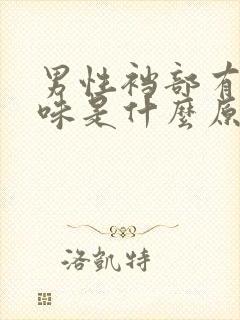 男性裆部有
味是什麼原
洛凱特